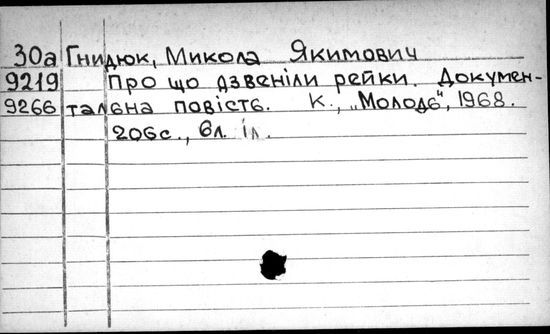 30а Гнидюк, Микола Якимович
9219 Про що дзвеніли рейки. Докумен-
9266 тальна повість. К., „Молодь", 1968.
206с., 6л. іл.